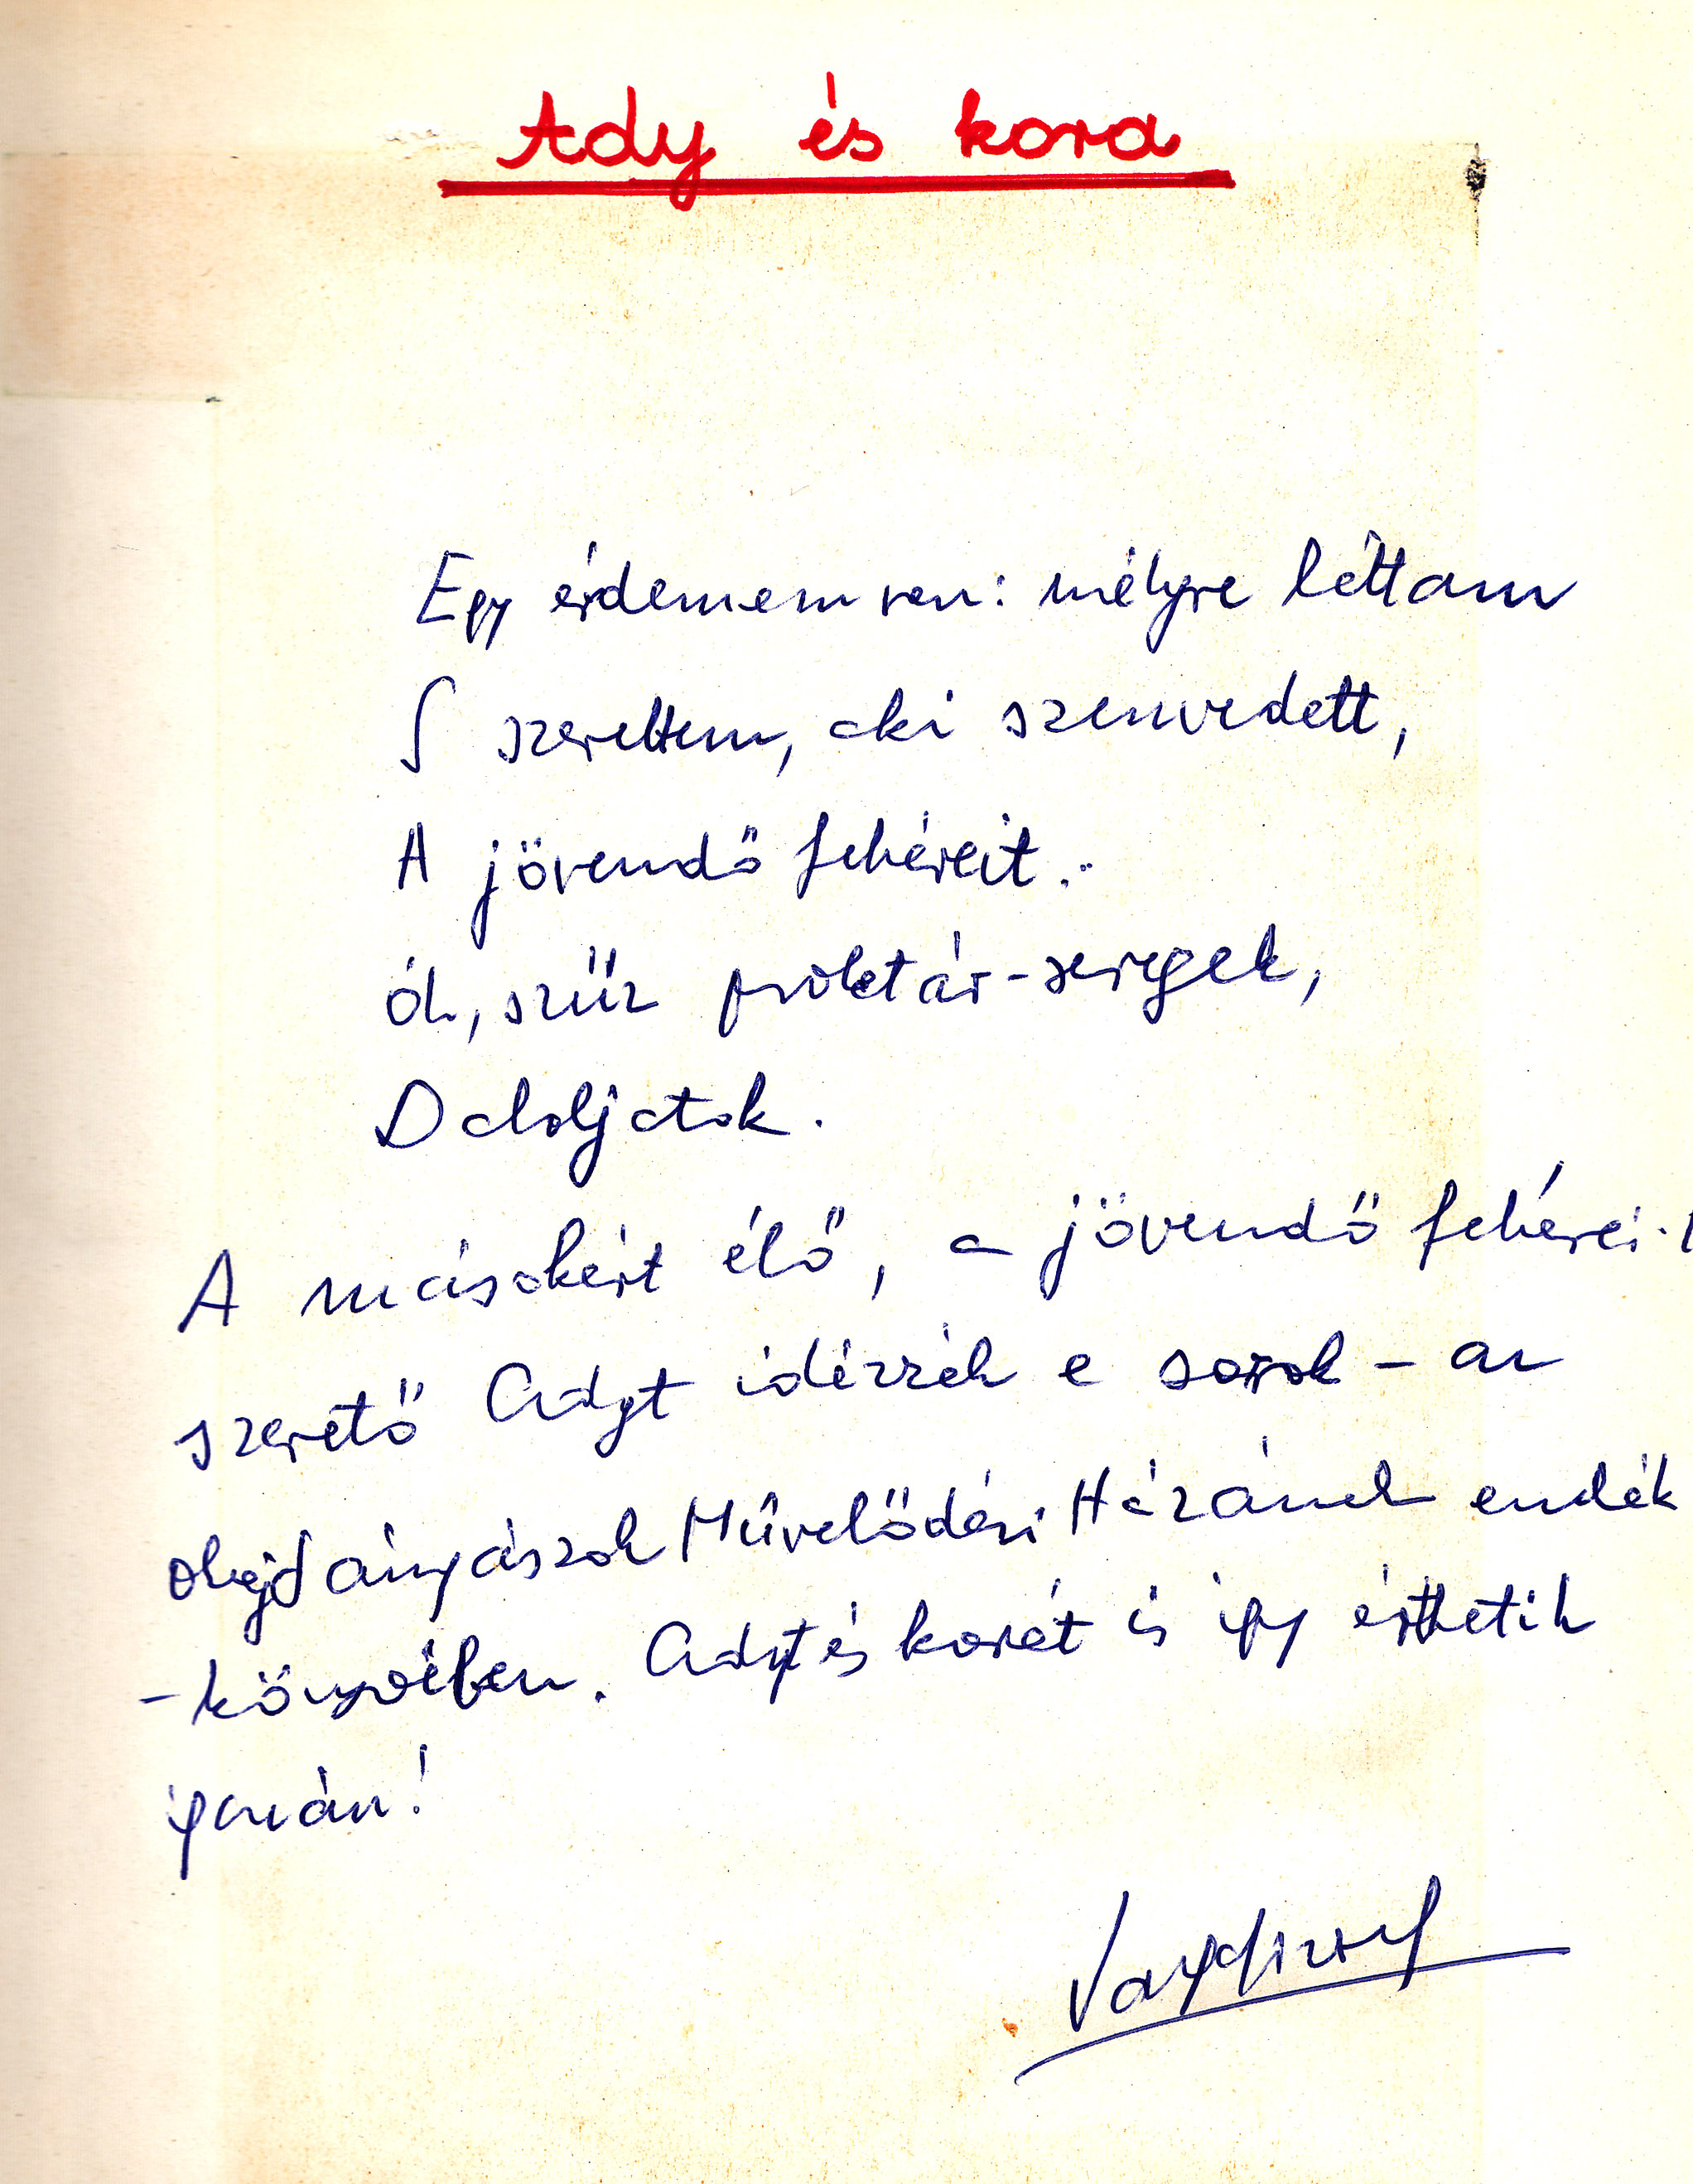 Ady és kora
Egy érdemem van: mélyre láttam
S szerettem, aki szenvedett,
A jövendő fehéreit..
Óh, szűz proletár-seregek,
Daloljatok.
A másokért élő, a jövendő fehérei-t
szerető Adyt idézzék e sorok - az
olajbányászok Művelődési Házának emlék
-könyvében. Adyt és korát is így érthetik
igazán!